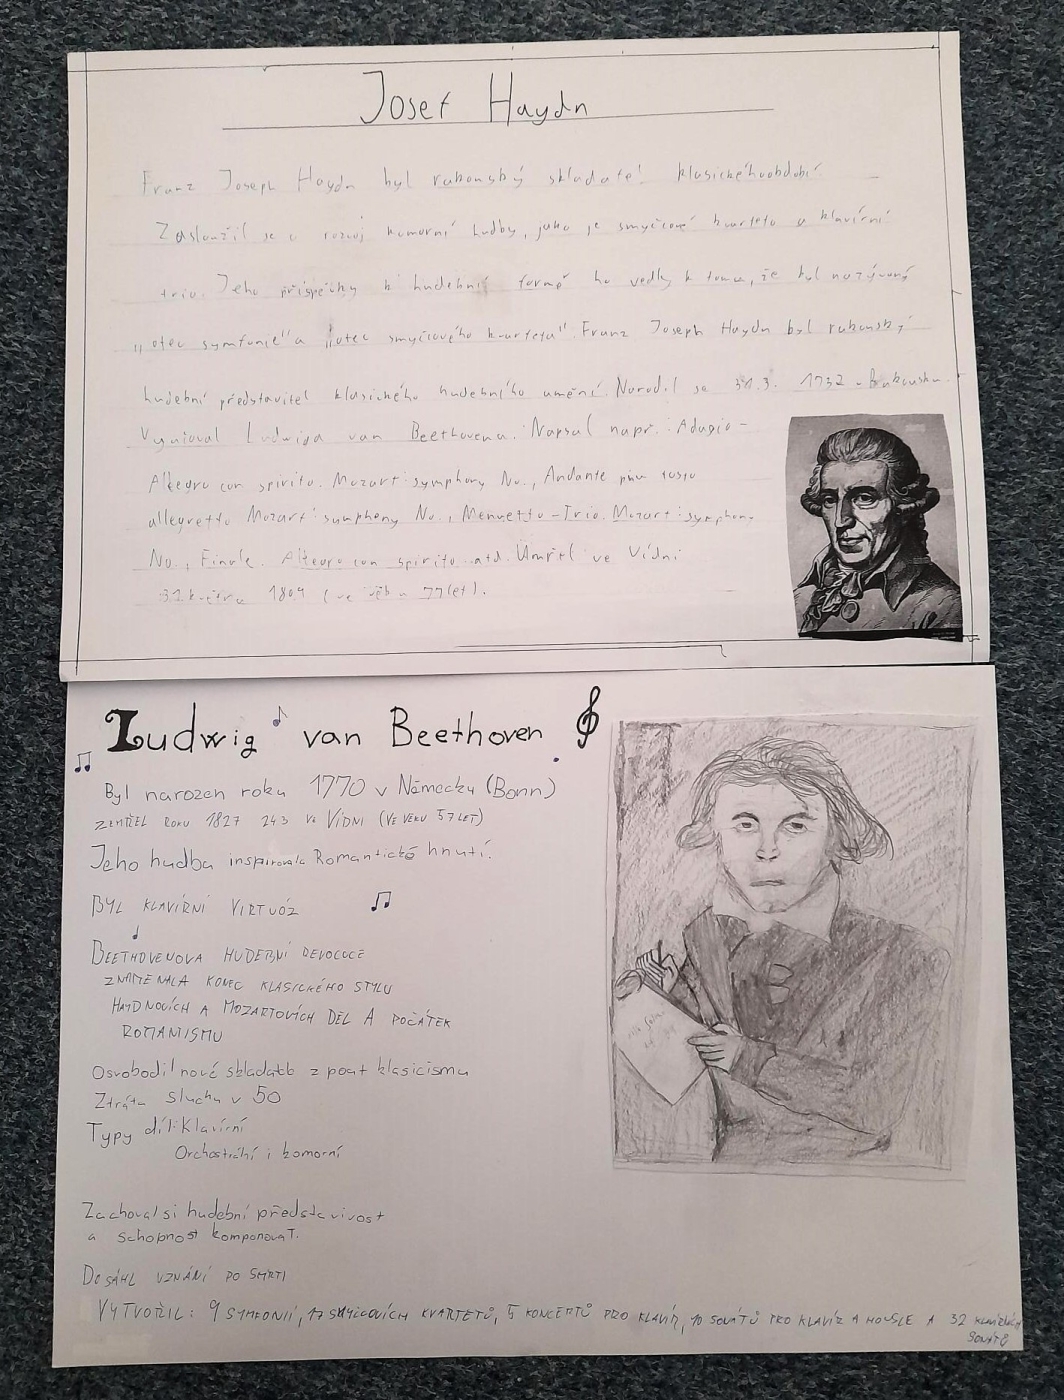 Josef Haydn
Franz Joseph Haydn byl rakouský skladatel klasického období
Zasloužil se o rozvoj komorní hudby, jako je smyčcové kvarteto a klavírní
trio. Jeho příspěvky k hudební formě ho vedly k tomu, že byl nazývaný
„otec symfonie" a „otec smyčcového kvarteta". Franz Joseph Haydn byl rakouský
hudební představitel klasického hudebního umění. Narodil se 31.3. 1732 v Rakousku.
Vyučoval Ludwiga van Beethovena. Napsal např.: Adagio-
Allegro con spirito. Mozart: symphony No., Andante
allegretto Mozart: symphony No., Menuetto-Trio. Mozart: symphony
No., Finale. Allegro con spirito. atd. Umřel ve Vídni
31. května 1809 (ve věku 77 let).
Ludwig van Beethoven
Byl narozen roku 1770 v Německu (Bonn)
ZEMŘEL ROKU 1827 24 3 VE VÍDNI (VE VEKU 57 LET)
Jeho hudba inspirovala Romantické hnutí.
BYL KLAVÍRNÍ VIRTUÓZ
BEETHOVENOVA HUDEBNÍ REVOLUCE
ZNAMENALA KONEC KLASICKÉHO STYLU
HAYDNOVÍCH A MOZARTOVÍCH DĚL A POČÁTEK
ROMANISMU
Osvobodil nové skladatele z pout klasicismu
Ztráta sluchu v 50
Typy děl: Klavírní
Orchestrální i komorní
Zachoval si hudební představivost
a schopnost komponovaT.
DOSÁHL UZNÁNÍ PO SMRTI
VYTVOŘIL: 9 SYMFONIÍ, 17 SMYČCOVÍCH KVARTETŮ, 5 KONCERTŮ PRO KLAVÍR, 10 SONÁTŮ PRO KLAVÍR A HOUSLE A 32 KLAVÍRNÍCH
SONÁTŮ